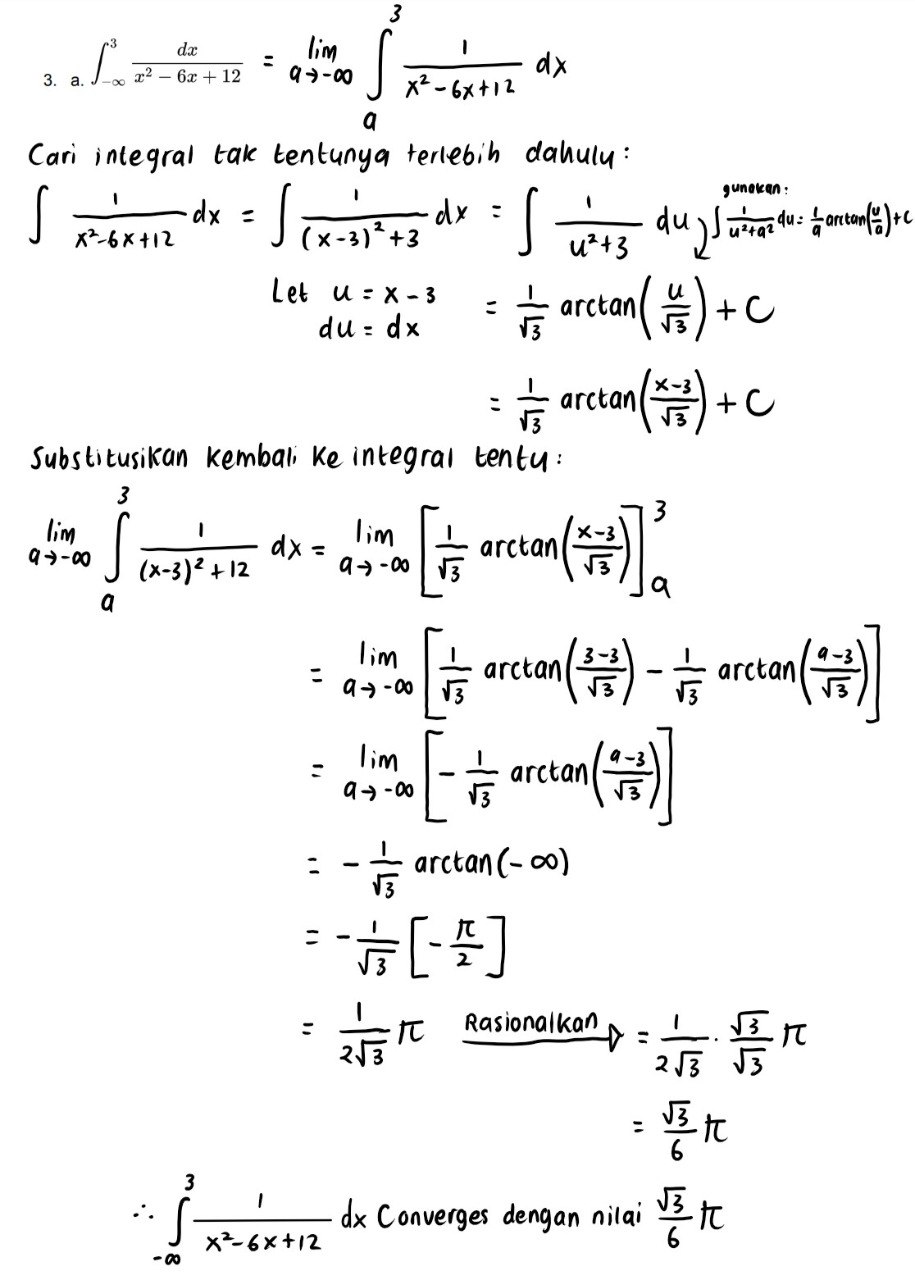 3. a. ∫_{-∞}^{3} dx/(x² − 6x + 12) = lim_{a→-∞} ∫_{a}^{3} 1/(x² − 6x + 12) dx
Cari integral tak tentunya terlebih dahulu :
∫ 1/(x² − 6x + 12) dx = ∫ 1/((x−3)² + 3) dx = ∫ 1/(u² + 3) du gunakan : ∫ 1/(u² + a²) du = 1/a arctan(u/a) + C
Let u = x − 3 = 1/√3 arctan(u/√3) + C
du = dx
= 1/√3 arctan((x−3)/√3) + C
Substitusikan kembali ke integral tentu :
lim_{a→-∞} ∫_{a}^{3} 1/((x−3)² + 12) dx = lim_{a→-∞} [1/√3 arctan((x−3)/√3)]_{a}^{3}
= lim_{a→-∞} [1/√3 arctan((3−3)/√3) − 1/√3 arctan((a−3)/√3)]
= lim_{a→-∞} [− 1/√3 arctan((a−3)/√3)]
= − 1/√3 arctan(−∞)
= − 1/√3 [− π/2]
= 1/(2√3) π Rasionalkan → = 1/(2√3) · √3/√3 π
= √3/6 π
∴ ∫_{-∞}^{3} 1/(x² − 6x + 12) dx Converges dengan nilai √3/6 π